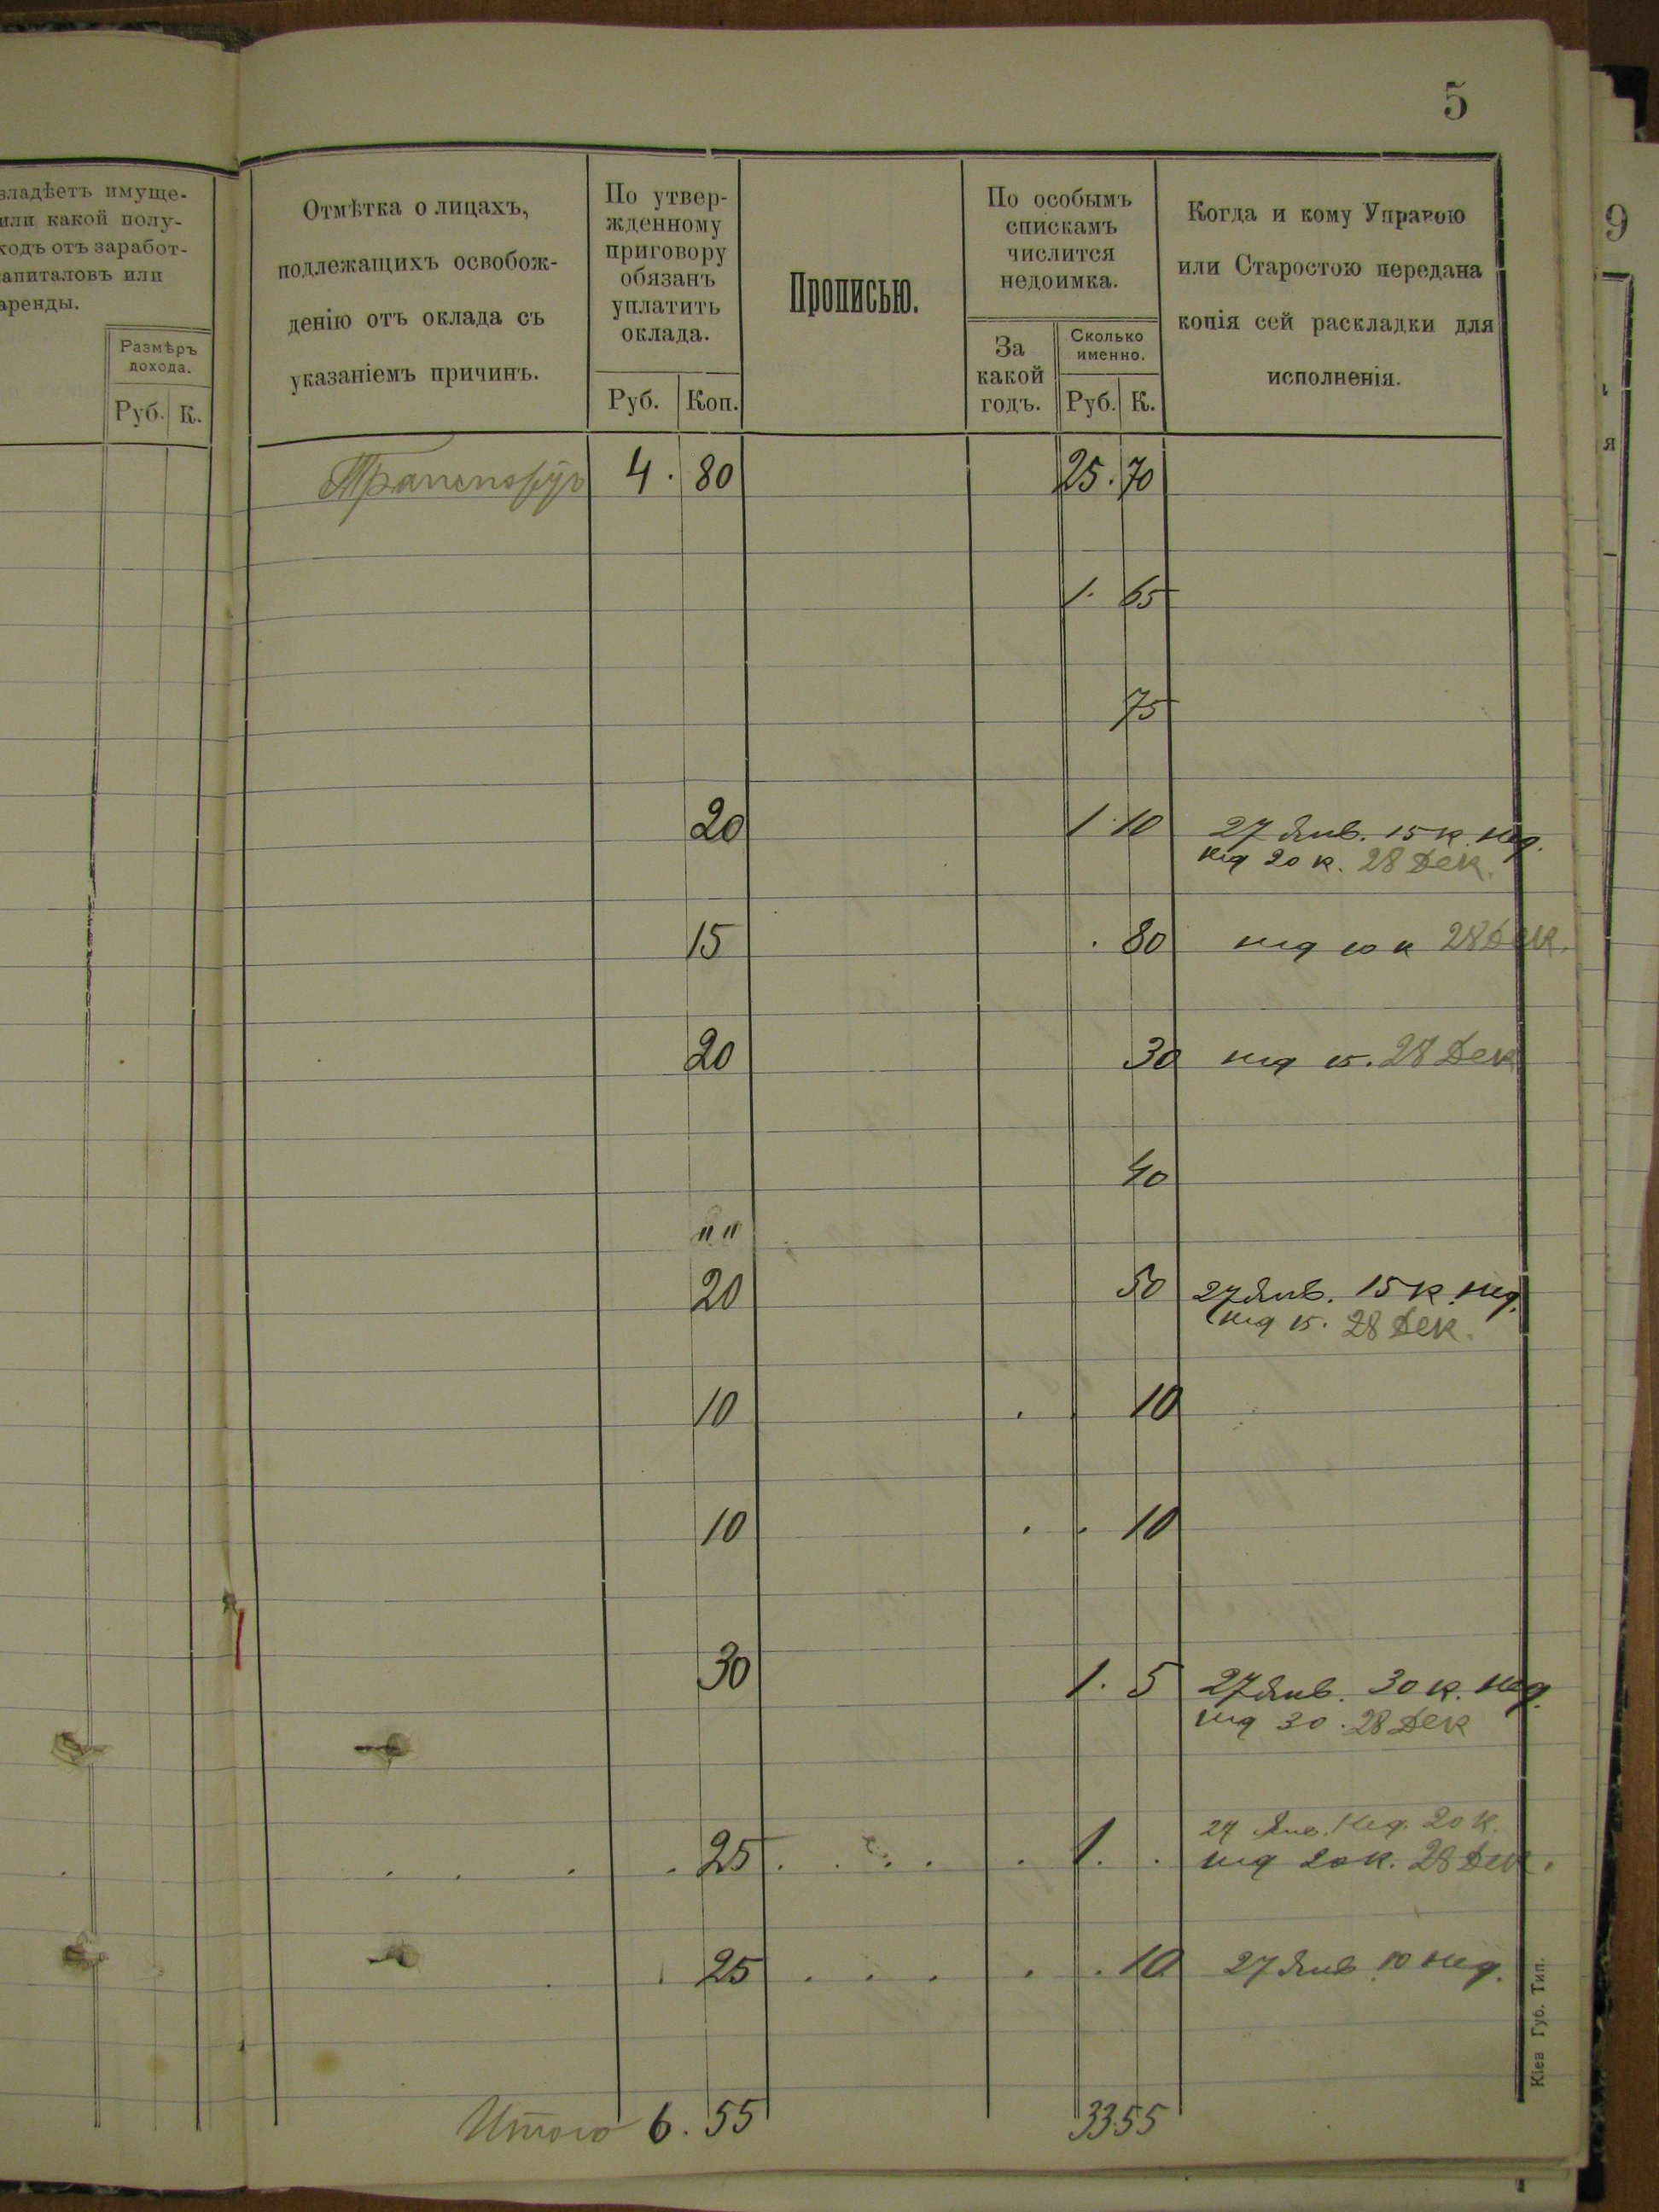 5
владѣетъ имуще-
или какой полу-
ходъ отъ заработ-
капиталовъ или
аренды.
Размѣръ
дохода.
Руб. К.
Отмѣтка о лицахъ,
подлежащихъ освобож-
денію отъ оклада съ
указаніемъ причинъ.
По утвер-
жденному
приговору
обязанъ
уплатить
оклада.
Руб. Коп.
Прописью.
По особымъ
спискамъ
числится
недоимка.
За
какой
годъ.
Сколько
именно.
Руб. К.
Когда и кому Управою
или Старостою передана
копія сей раскладки для
исполненія.
9
я
Транспортъ 4. 80 25. 70
1. 65
75
20 1. 10 27 Янв. 15 к. нед.
нед 20 к. 28 Дек.
15 . 80 нед 10 к 28 Дек.
20 30 нед 15. 28 Дек
40
" "
20 50 27 Янв. 15 к. нед.
нед 15. 28 Дек.
10 . . 10
10 . . 10
30 1. 5 27 Янв. 30 к. нед.
нед 30. 28 Дек
27 Янв. нед. 20 к.
25 1. нед 20 к. 28 Дек.
25 10 27 Янв 10 нед.
Итого 6. 55 33.55
Кіев Губ. Тип.